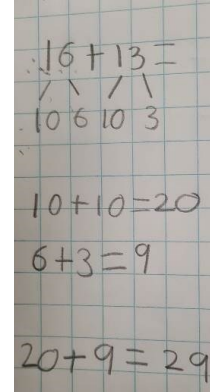 16+13=
10 6 10 3
10+10=20
6+3=9
20+9=29